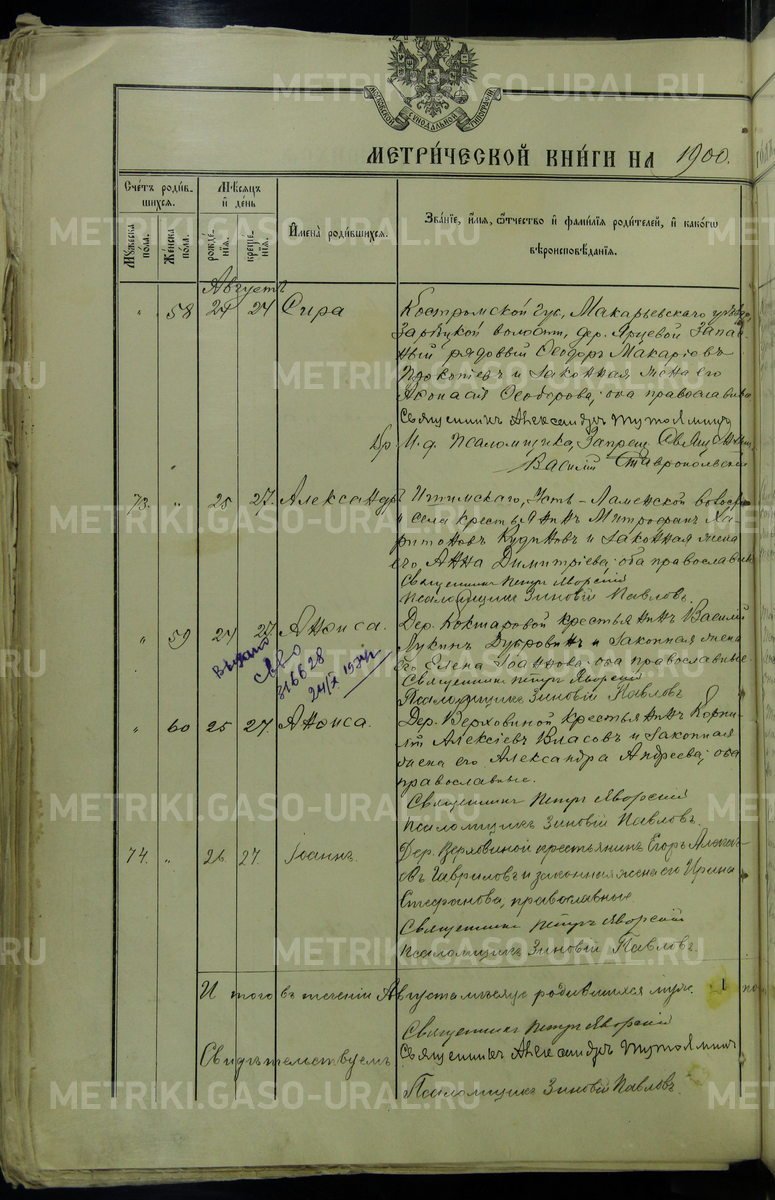 МЕТРИЧЕСКОЙ КНИГИ НА 1900.
Счетъ родив-
шихся.
Мѣсяцъ
и день
Мужеска
пола.
Женска
пола.
рожде-
нія.
креще-
нія.
Имена родившихся.
Званіе, имя, отчество и фамилія родителей, и какого
вѣроисповѣданія.
Августъ
" 58 24 24 Сира
Костромской губ., Макарьевскаго уѣзда,
Зарѣцкой волости, дер. Ярцевой Запас-
ный рядовый Ѳеодоръ Макаріевъ
Прокопіевъ и законная жена его
Аѳонасія Ѳеодорова; оба православные
Священникъ Александръ Тутолминъ
И. д. псаломщика, Запрещ. Священникъ
Василій Ставропольскій
73. " 25 27. Александръ
Ишимскаго, Усть-Ламенской волости
и села крестьянинъ Митрофанъ Ха-
ритоновъ Кудиновъ и законная жена
его, Анна Димитріева; оба православные
Священникъ Петръ Яворскій
Псаломщикъ Зиновій Павловъ.
" 59 24 27. Анѳиса.
Дер. Кокшаровой крестьянинъ Василій
Лукинъ Дубровинъ и законная жена
его Елена Іоаннова; оба православные
Священникъ Петръ Яворскій
Псаломщикъ Зиновій Павловъ
выдано
316628
" 60 25 27. Анѳиса.
Дер. Верховиной крестьянинъ Корни-
лій Алексіевъ Власовъ и законная
жена его Александра Андреева; оба
православные.
Священникъ Петръ Яворскій
Псаломщикъ Зиновій Павловъ.
74. " 26 27. Іоаннъ.
Дер. Верховиной крестьянинъ Егоръ Алексѣ-
евъ Гавриловъ и законная жена его Ирина
Стефанова, православные
Священникъ Петръ Яворскій
Псаломщикъ Зиновій Павловъ
Итого въ теченіи Августа мѣсяца родившихся муж.
Священникъ Петръ Яворскій
Свидѣтельствуемъ
Священникъ Александръ Тутолминъ
Псаломщикъ Зиновій Павловъ.
METRIKI.GASO-URAL.RU